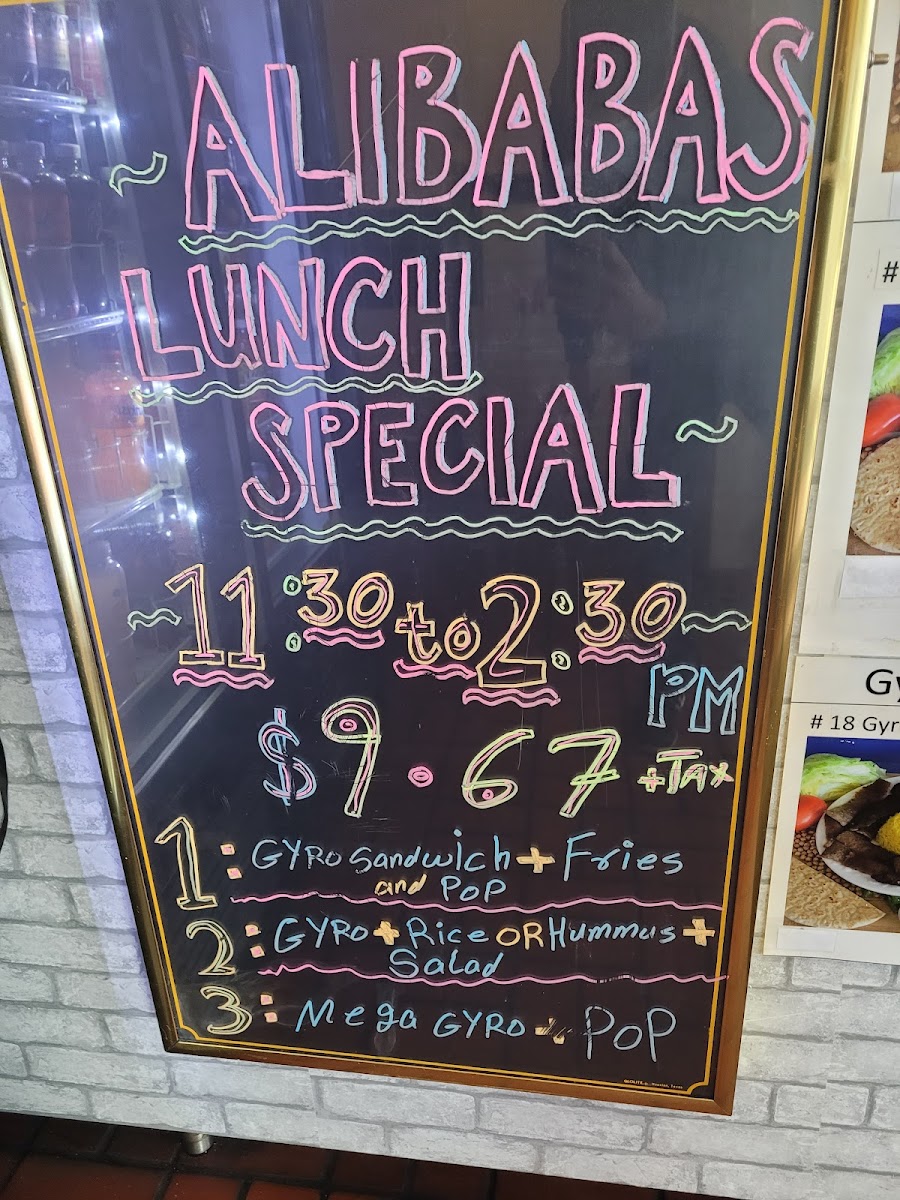 ~ ALIBABAS
LUNCH
SPECIAL ~
~ 11:30 to 2:30 ~
PM
$9.67 +TAX
1: GYRO Sandwich + Fries
and POP
2: GYRO + Rice OR Hummus +
Salad
3: Mega GYRO + POP
#
Gy
# 18 Gyr